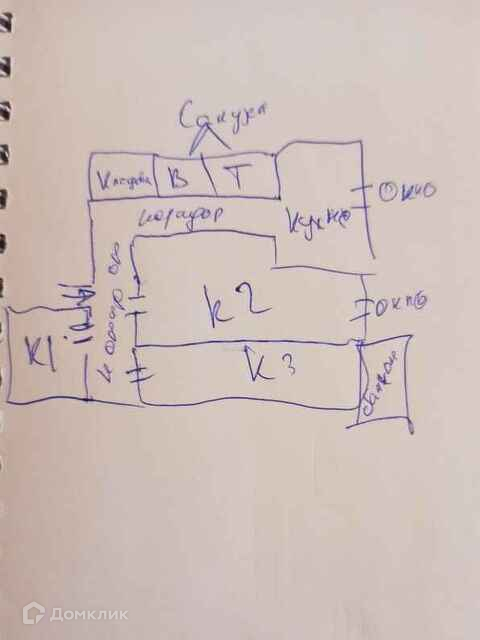 Санузл
Кладовка В Т
коридор
Кухня
окно
К2
окно
К1
коридор
К3
балкон
Домклик